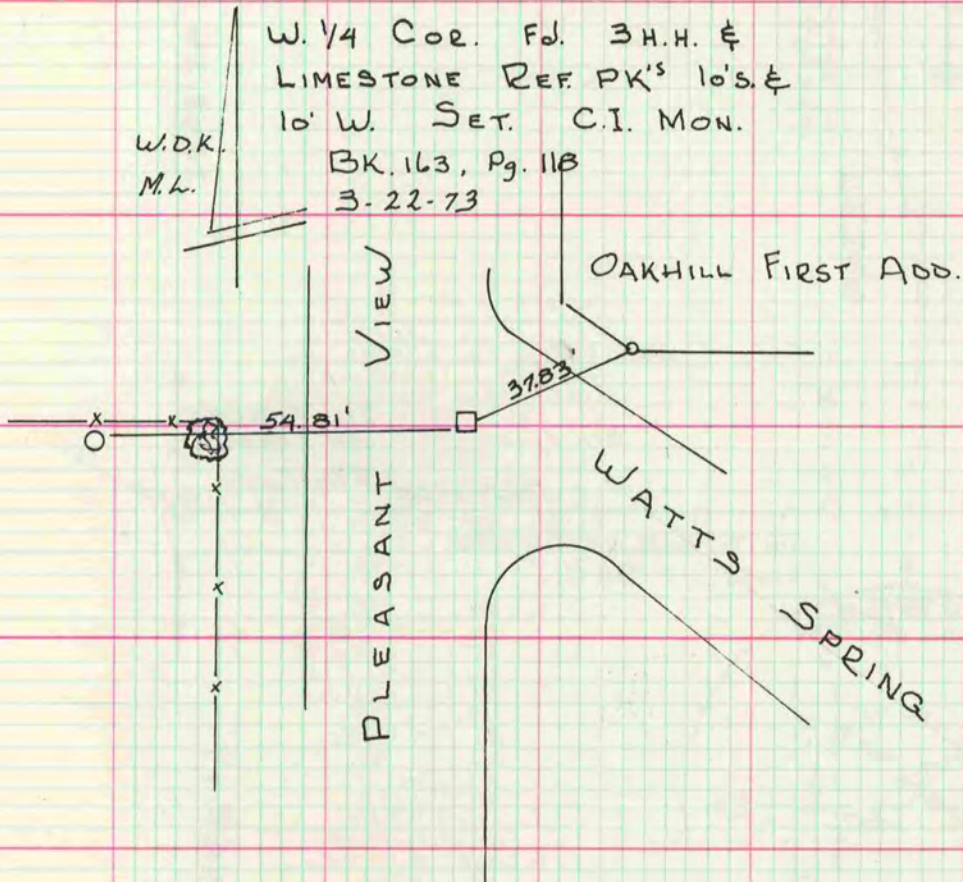 W. 1/4 COR. Fd. 3 H.H. &
LIMESTONE REF. PK'S 10'S. &
10' W. SET. C.I. MON.
BK. 163, Pg. 118
3-22-73
W.D.K.
M.L.
OAKHILL FIRST ADD.
PLEASANT VIEW
37.83'
54.81'
WATTS SPRING